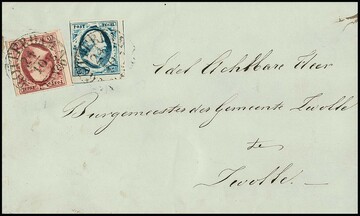 Edel Achtbare Heer
Burgemeester der Gemeente Zwolle
te
Zwolle.